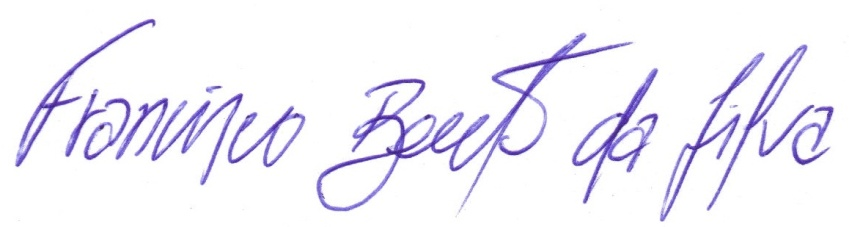 Francisco Bento da Silva